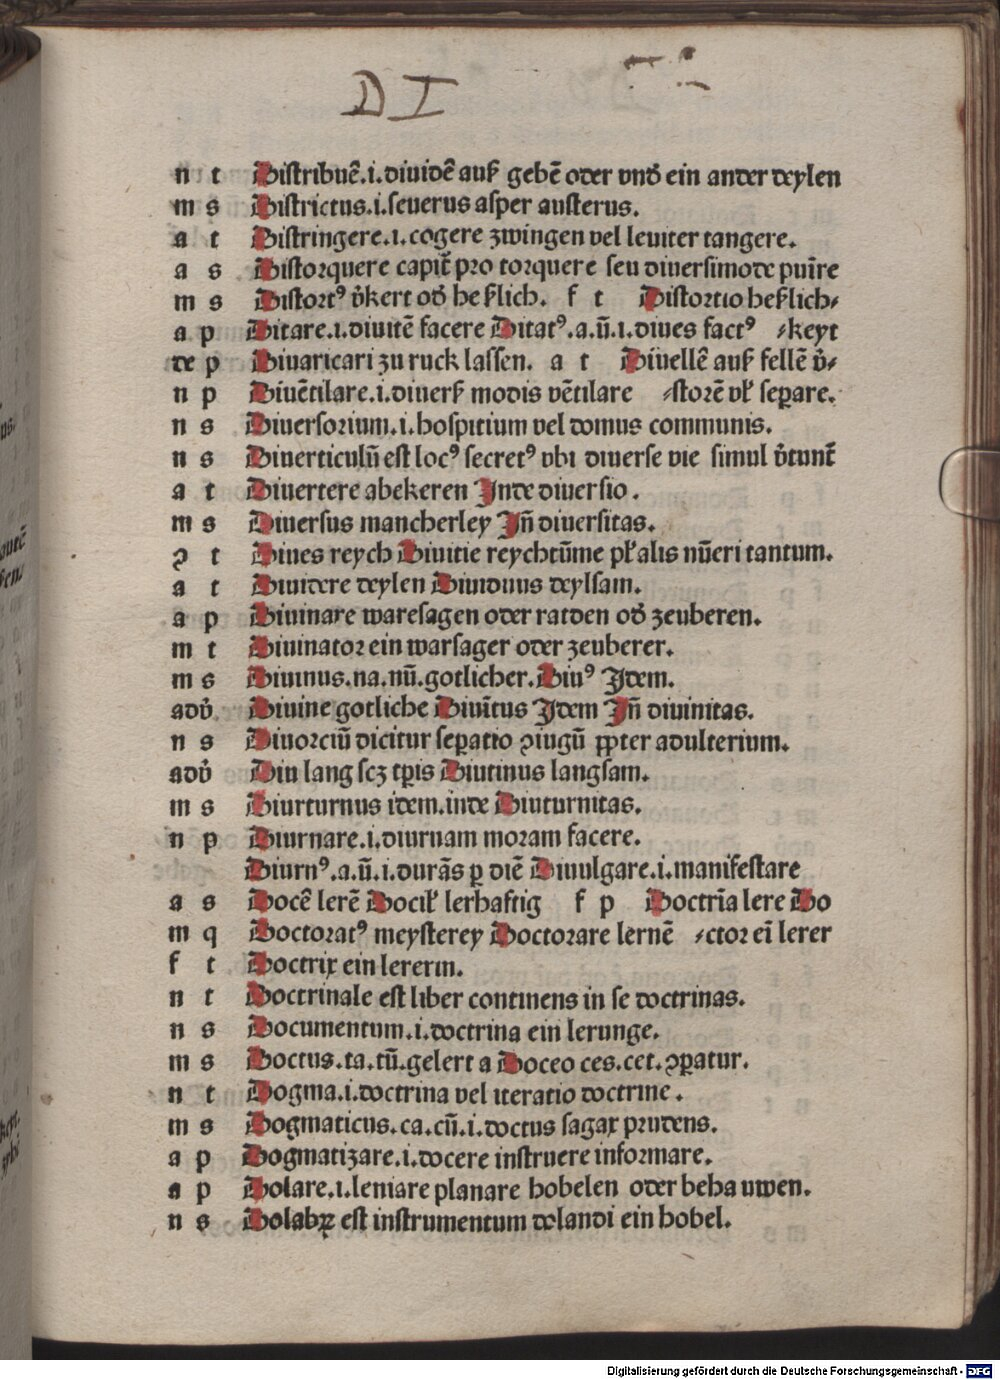 D I
n t Distribuē.i.diuidē auß gebē oder vnď ein ander deylen
m s Districtus.i.seuerus asper austerus.
a t Distringere.i.cogere zwingen vel leuiter tangere.
a s Distorquere capit̄ pro torquere seu diuersimode puīre
m s Distortꝰ v̓kert od̓ heßlich. f t Distortio heßlich⸗
a p Ditare.i.diuitē facere Ditatꝰ.a.ū.i.diues factꝰ ⸗keyt
de p Diuaricari zu ruck lassen. a t Diuellē auß fellē v̓⸗
n p Diuētilare.i.diuerß modis vētilare ⸗storē vł seꝑare.
n s Diuersorium.i.hospitium vel domus communis.
n s Diuerticulū est locꝰ secretꝰ vbi diuerse vie simul v̓tunt̄
a t Diuertere abekeren Inde diuersio.
m s Diuersus mancherley Iñ diuersitas.
ꝛ t Diues reych Diuitie reychtūme płalis nūeri tantum.
a t Diuidere deylen Diuiduus deylsam.
a p Diuinare waresagen oder ratden od̓ zeuberen.
m t Diuinator ein warsager oder zeuberer.
m s Diuinus.na.nū.gotlicher.Diuꝰ Idem.
adv̓ Diuine gotliche Diuītus Idem Iñ diuinitas.
n s Diuorciū dicitur seꝑatio ꝯiugū ꝓpter adulterium.
adv̓ Diu lang scꝫ tꝑis Diutinus langsam.
m s Diurturnus idem.inde Diuturnitas.
n p Diurnare.i.diurnam moram facere.
Diurnꝰ.a.ū.i.durās ꝑ diē Diuulgare.i.manifestare
a s Docē lerē Docił lerhafftig f p Doctrīa lere Do
m q Doctoratꝰ meysterey Doctorare lernē ⸗ctor eī lerer
f t Doctrix ein lererin.
n t Doctrinale est liber continens in se doctrinas.
n s Documentum.i.doctrina ein lerunge.
m s Doctus.ta.tū.gelert a Doceo ces.cet.ꝯꝑatur.
n t Dogma.i.doctrina vel iteratio doctrine.
m s Dogmaticus.ca.cū.i.doctus sagax prudens.
a p Dogmatizare.i.docere instruere informare.
a p Dolare.i.leniare planare hobelen oder behauwen.
n s Dolabꝝ est instrumentum dolandi ein hobel.
Digitalisierung gefördert durch die Deutsche Forschungsgemeinschaft - DFG